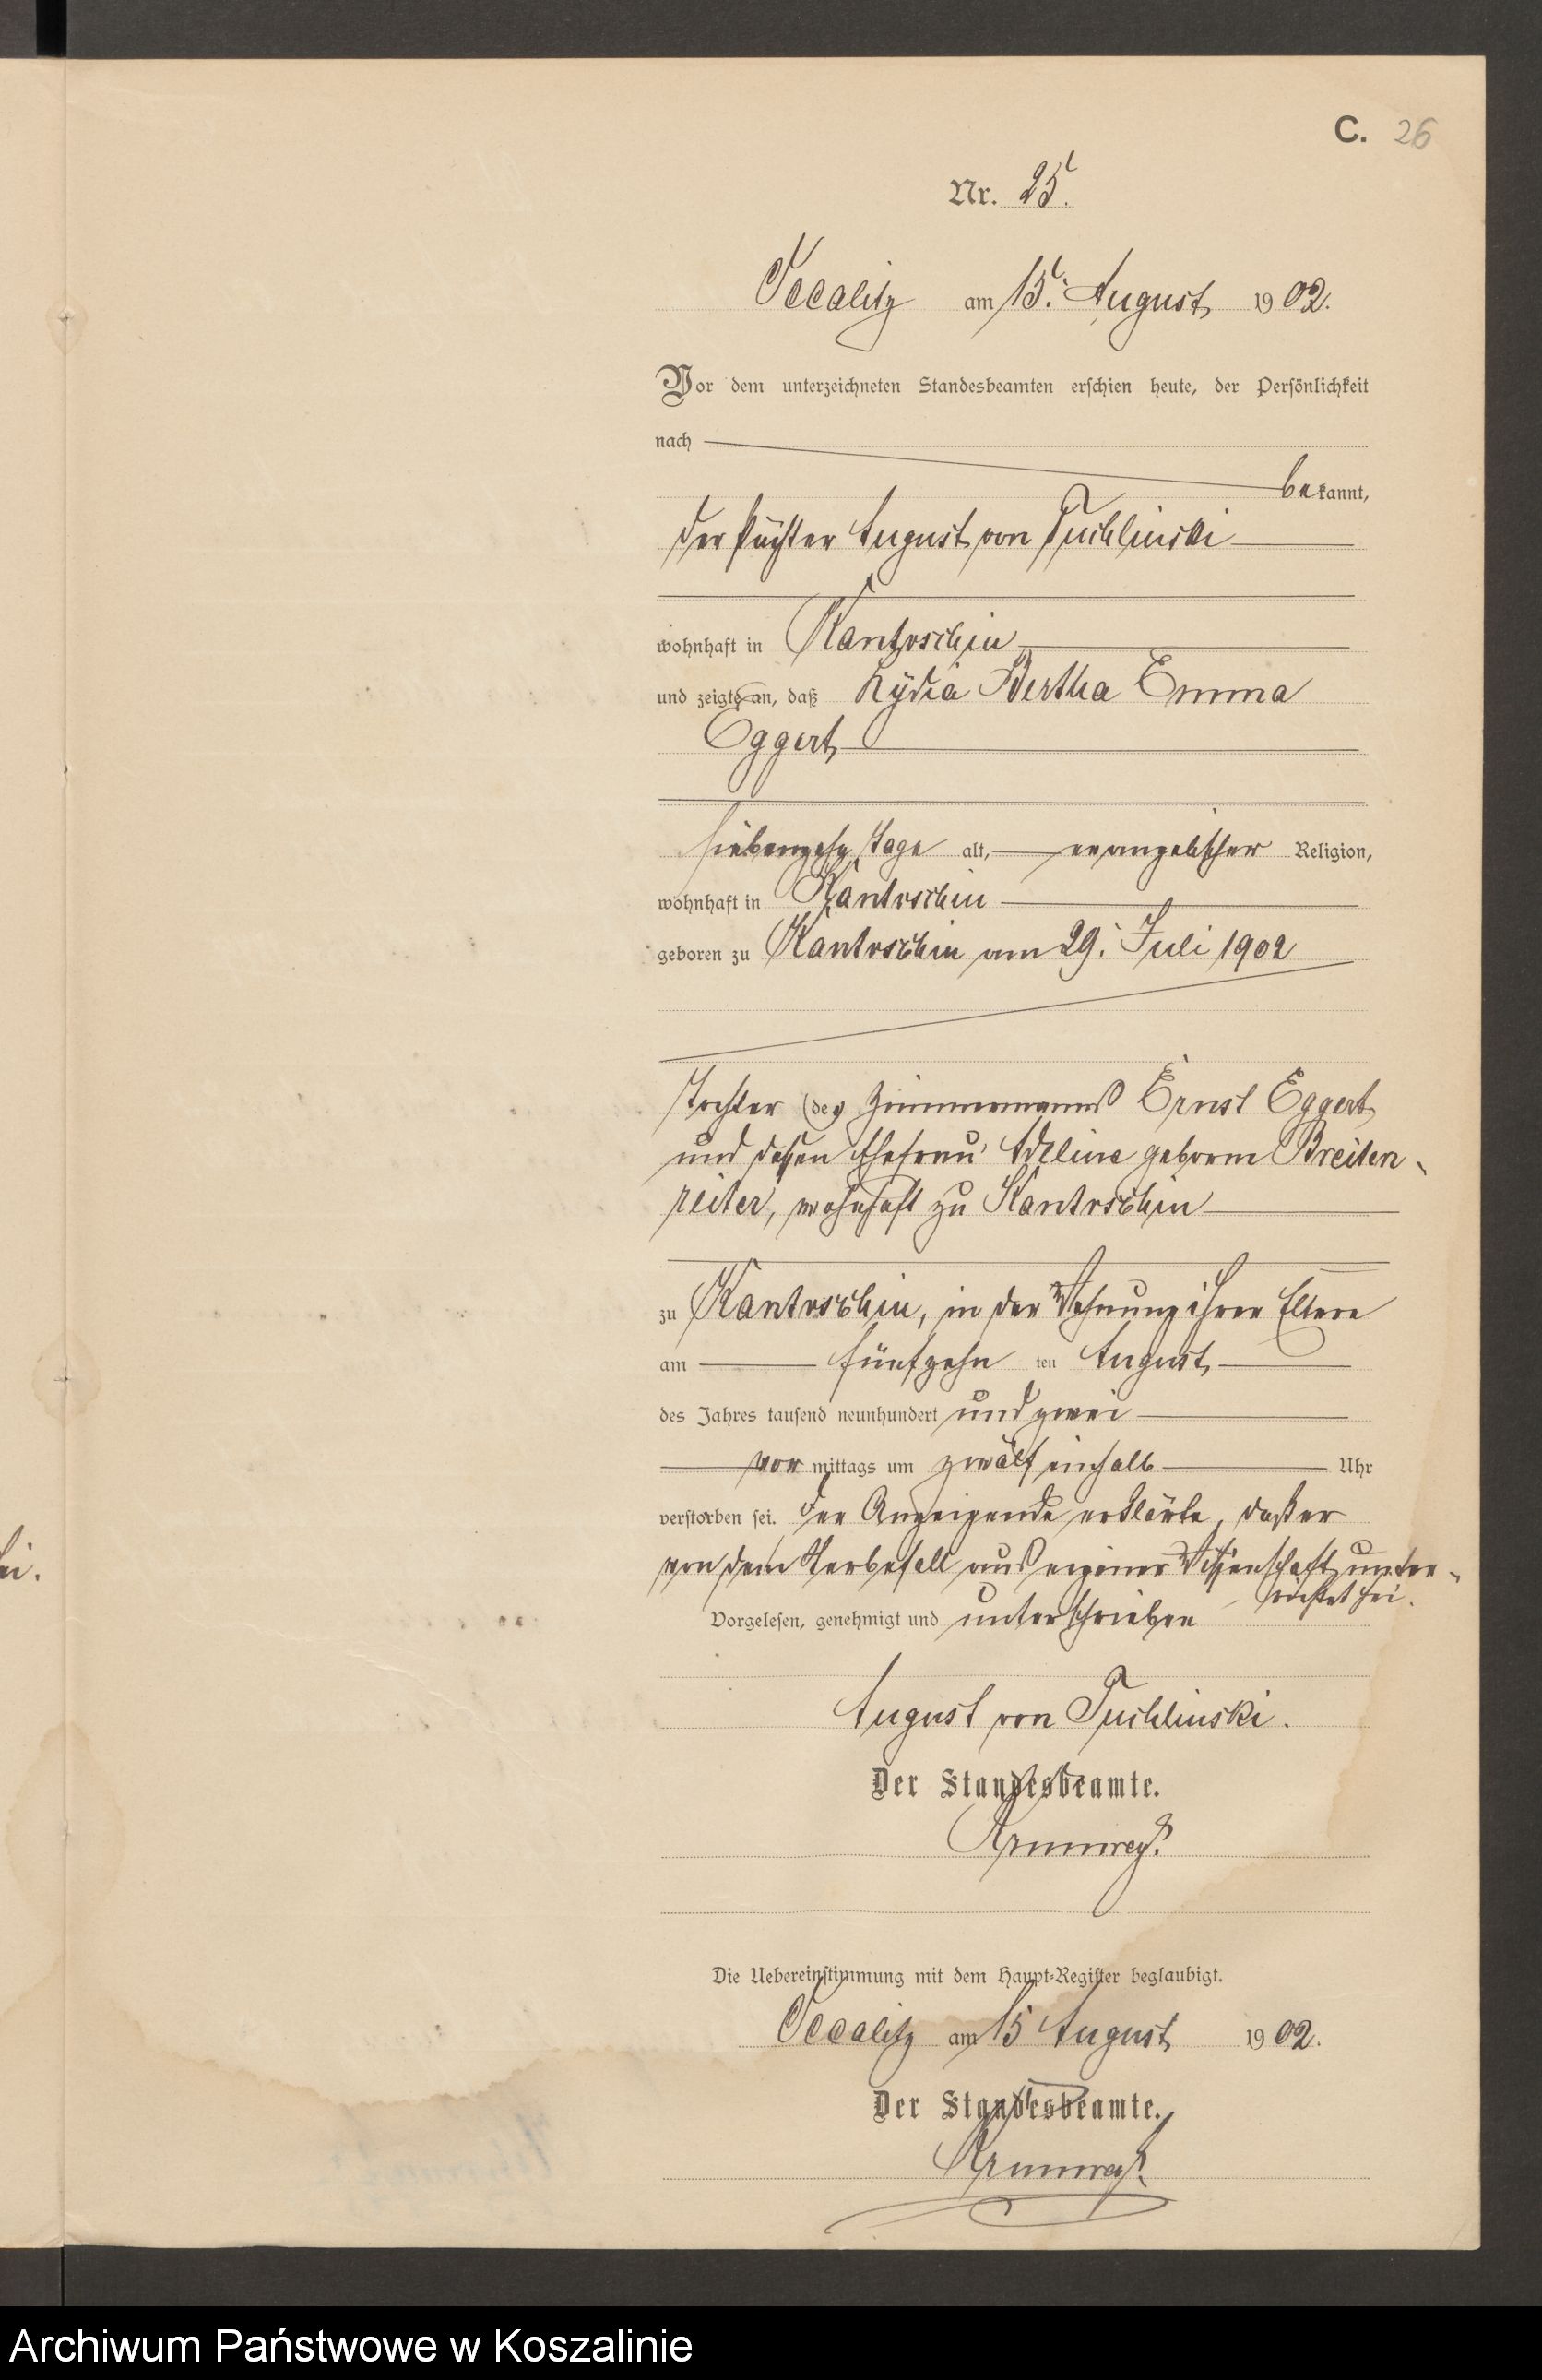 C. 26
Nr. 25.
Occalitz am 15. August 1902.
Vor dem unterzeichneten Standesbeamten erschien heute, der Persönlichkeit
nach
bekannt,
der Pächter August von Tuchlinski
wohnhaft in Kantrschin
und zeigte an, daß Lydia Bertha Emma
Eggert
siebenzehn Tage alt, evangelischer Religion,
wohnhaft in Kantrschin
geboren zu Kantrschin am 29. Juli 1902
Tochter des Zimmermanns Ernst Eggert
und dessen Ehefrau Adeline geborne Breiten-
reiter, wohnhaft zu Kantrschin
zu Kantrschin, in der Wohnung ihrer Eltern
am fünfzehn ten August
des Jahres tausend neunhundert und zwei
vor mittags um zwölf einhalb Uhr
verstorben sei. Der Anzeigende erklärte, daß er
von dem Sterbefall aus eigener Wissenschaft unter-
richtet sei.
Vorgelesen, genehmigt und unterschrieben
August von Tuchlinski.
Der Standesbeamte.
Die Uebereinstimmung mit dem Haupt-Register beglaubigt.
Occalitz am 15 August 1902.
Der Standesbeamte.
Archiwum Państwowe w Koszalinie